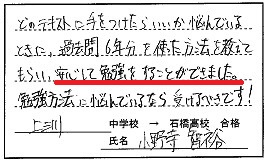 どのテキストに手をつけたらいいか悩んでいる
ときに、過去問6年分を使た方法を教えて
もらい、安心して勉強をすることができました。
勉強方法に悩んでいるなら受けるべきです!
上三川 中学校 → 石橋高校 合格
氏名 小野寺 智裕